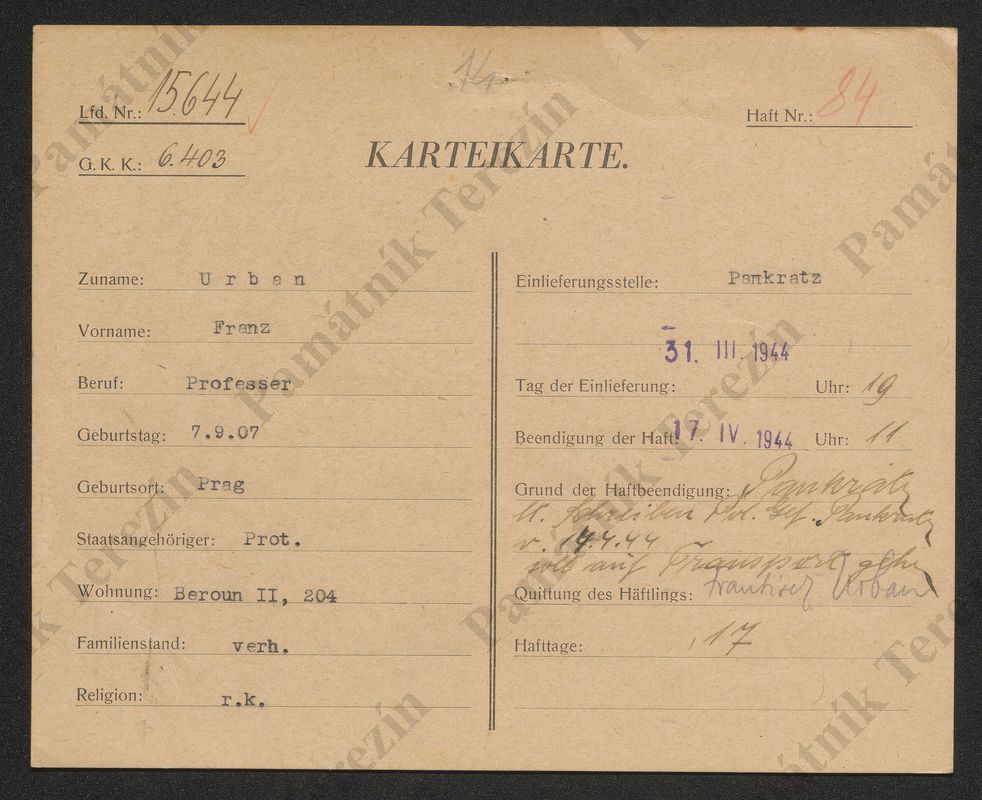 14
Lfd. Nr.: 15.644
Haft Nr.: 84
G. K. K.: 6.403
KARTEIKARTE.
Zuname: Urban
Vorname: Franz
Beruf: Professer
Geburtstag: 7.9.07
Geburtsort: Prag
Staatsangehöriger: Prot.
Wohnung: Beroun II, 204
Familienstand: verh.
Religion: r.k.
Einlieferungsstelle: Pankratz
31. III. 1944
Tag der Einlieferung: Uhr: 19
Beendigung der Haft: 17. IV. 1944 Uhr: 11
Grund der Haftbeendigung: Pankratz
lt. Schreiben Pol. Gef. Pankratz
v. 14.4.44
soll auf Transport gehen
Quittung des Häftlings: František Urban
Hafttage: 17
Památník Terezín
Památník Terezín
Památník Terezín
Památník Terezín